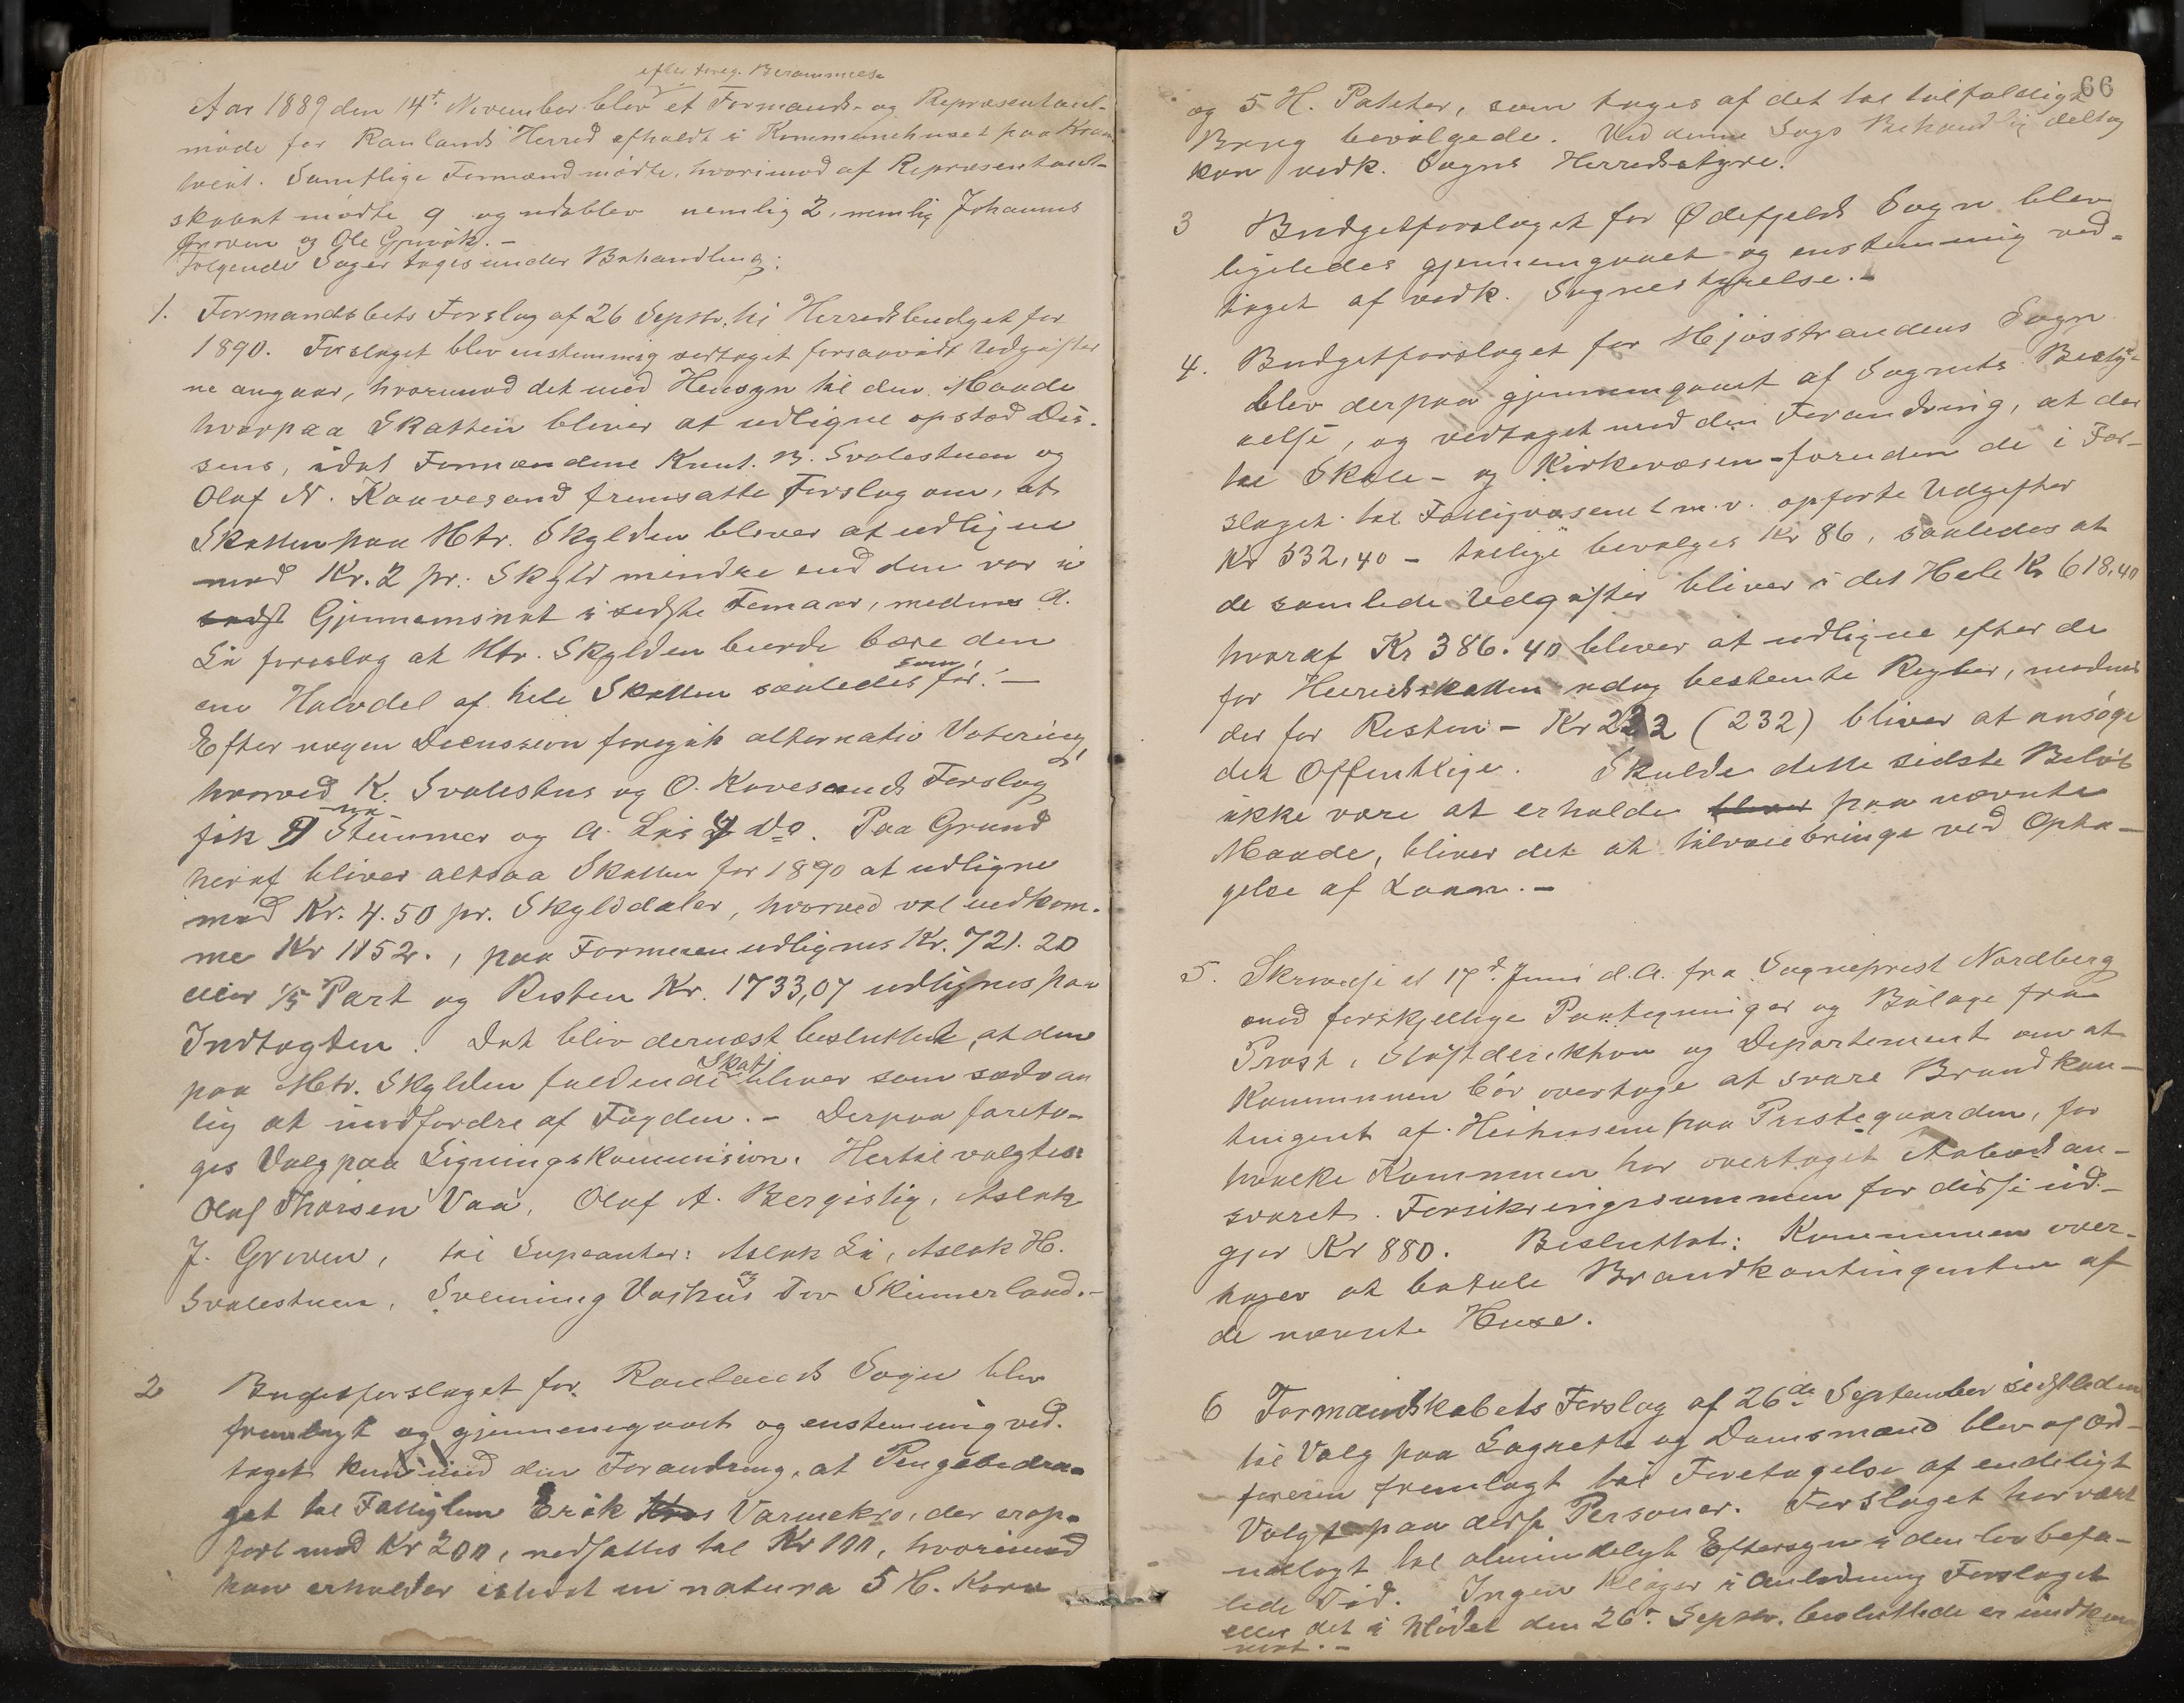 efter foreg. Berammelse
Aar 1889 den 14de November blev et Formands- og Repræsentant-
møde for Raulands Herred afholdt i Kommunehuset paa Kram
tveit. Samtlige Formænd mødte, hvorimod af Repræsentant-
skabet mødte 9 og udeblev nemlig 2, nemlig Johannes
Groven og Ole Gjuvik. –
Følgende Sager toges under Behandling:
1. Formandskbets Forslag af 26 Septbr. til Herredsbudget for
1890. Forslaget blev enstemmig vedtaget forsaavidt Udgifter
ne angaar, hvorimod det med Hensyn til den Maade
hvorpaa Skatten bliver at udligne opstod Dis-
sens, idet Formændene Knut. B. Svalestuen og
Olaf N. Kaavesand fremsatte Forslag om, at
Skatten paa Mtr. Skylden bliver at udligne
med Kr. 2 pr: Skyld mindre end den var i
sidst Gjennemsnit i sidste Femaar, medens A.
Li foreslog at Mtr. Skylden burde bære den
ene Halvdel af hele Skatten saaledes som før. –
Efter nogen Discussion foregik alternativ Votering,
hvorved K. Svalestus og O. Kovesands Forslag
fik 9 Stemmer og A. Lis 4 Do. Paa Grund
heraf bliver altsaa Skatten for 1890 at udligne
med Kr. 4.50 pr. Skylddaler, hvorved vil indkom-
me Kr 1152., paa Formuen udlignes Kr. 721.20
eller 1/5 Part og Resten Kr. 1733,07 udlignes paa
Indtægten. Det blev dernæst besluttet, at den
paa Mtr. Skylden faldende Skat bliver som sædvan
lig at indfordre af Fogden. – Derpaa foreto-
ges Valg paa Ligningskommision. Hertil valgtes:
Olaf Thorsen Vaa, Olaf A. Bergislig, Aslak
J. Groven, til Supeanter: Aslak Li, Aslak H.
Svalestuen, Sveining Vashus og Tov Skinnerland. –
2 Bugetforslaget for Raulands Sogn blev
fremlagt og gjennemgaaet og enstemmig ved-
taget kun med den Forandring, at Pengebidra-
get til Fattiglem Erik Kros Varmekro, der er op-
ført med Kr 200, nedsattes til Kr 100, hvorimod
han erholder istedet in natura 5 H. Korn
66
og 5 H. Poteter, som toges af det til tilfældigt
Brug bevilgede. Ved denne Sags Behandlig deltog
kun vedk. Sogns Herredsstyre.
3 Budgetforslaget for Ødefjelds Sogn blev
ligeledes gjennemgaaet og enstemmig ved-
taget af vedk. Sognestyrelse. –
4. Budgetforslaget for Mjøsstrandens Sogn
blev derpaa gjennemgaaet af Sognets Besty-
relse, og vedtaget med den Forandring, at der
til Skole- og Kirkevæsen – foruden de i For-
slaget til Fattigvæsenet m.v. opførte Udgifter
Kr 532,40 – tillige bevilges Kr 86, saaledes at
de samlede Udgifter bliver i det Hele Kr 618,40
hvoraf Kr 386.40 bliver at udligne efter de
for Herredsskatten idag bestemte Regler, medens
der for Resten – Kr 232 (232) bliver at ansøge
det Offentlige. Skulde dette sidste Beløb
ikke være at erholde bliver paa nævnte
Maade, bliver det at tilveiebringe ved Opta-
gelse af Laan. –
5. Skrivelse af 17de Juni d.A. fra Sogneprest Nordberg
med forskjellige Paategninger og Bilage fra
Prost, Stiftdirektion og Departement om at
Kommunen bør overtage at svare Brandkon-
tingent af Heihusene paa Prestegaarden, for
hvilke Kommunen har overtaget Aabodsan-
svaret. Forsikringssummen for disse ud-
gjør Kr 880. Besluttet: Kommunen over-
tager at betale Brandkontingenten af
de nævnte Huse.
6 Formandskabets Forslag af 26de September sidstleden
til Valg paa Lagrette og Domsmænd blev af Ord-
føreren fremlagt til Foretagelse af endeligt
Valg paa disse Personer. Forslaget har været
udlagt til almindeligt Eftersyn i den lovbefa-
lede Tid. Ingen Klager i Anledning Forslaget
eller det i Mødet den 26de Septbr. besluttede er indkom
met. –